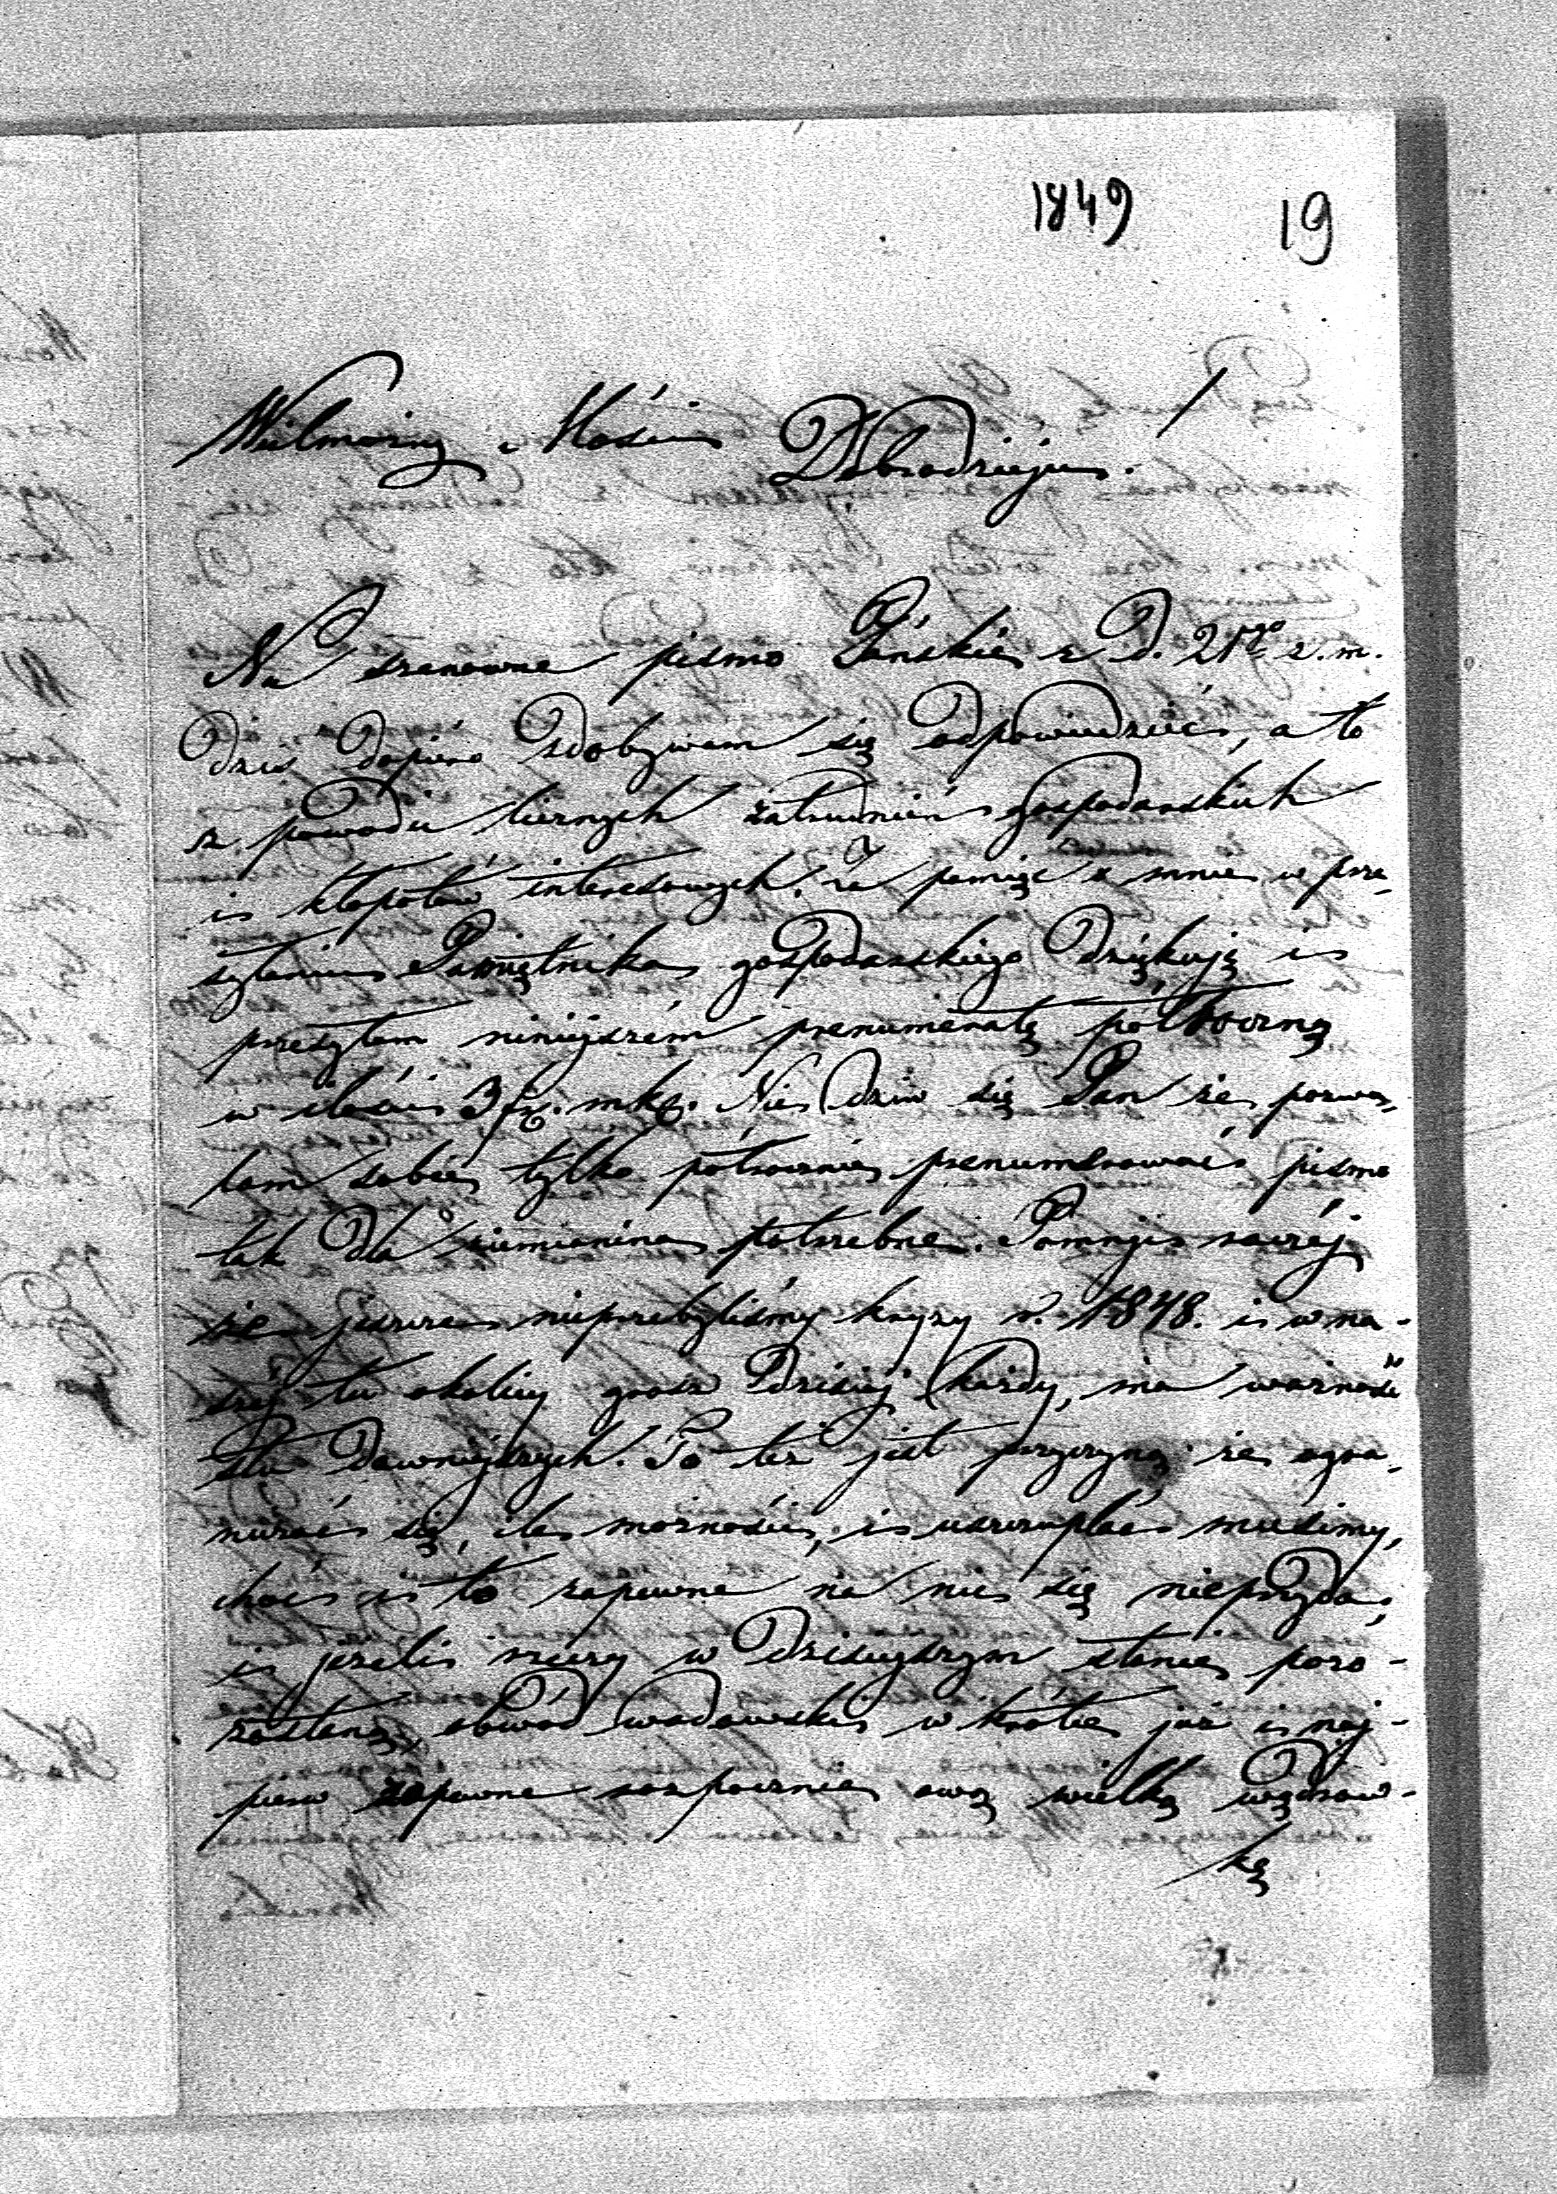 1849 19
Wielmożny Mości Dobrodzieju!
Na szanowne pismo Pańskie z D. 21go z. m.
dziś dopiero zdobywam się odpowiedzieć, a to
z powodu licznych zatrudnień gospodarskich
i kłopotów interesowych. Za pamięć o mnie w prze-
syłaniu Pamiętnika gospodarskiego dziękuję i
przesyłam niniejszém prenumeratę półroczną
w ilości 3 fr. mk. Nie dziw się Pan że pozwa-
lam sobie tylko półrocznie prenumerować pismo
tak dla ziemianina potrzebne. Pomnij raczéj
że jeszcze nieprzebyliśmy kryzy r. 1848. i w na-
széj tu okolicy grosz dzisiaj każdy, ma wartość
stu dawniejszych. To też jest przyczyną że ogra-
niczać się, ile możności, i uszczuplać musimy,
choć i to zapewne na nic się nieprzyda,
i jeżeli rzeczy w dzisiejszym stanie pozo-
zostaną, obwód wadowski w krótce już i naj-
pierw zapewne rozpocznie ową wielką wędrów-
kę